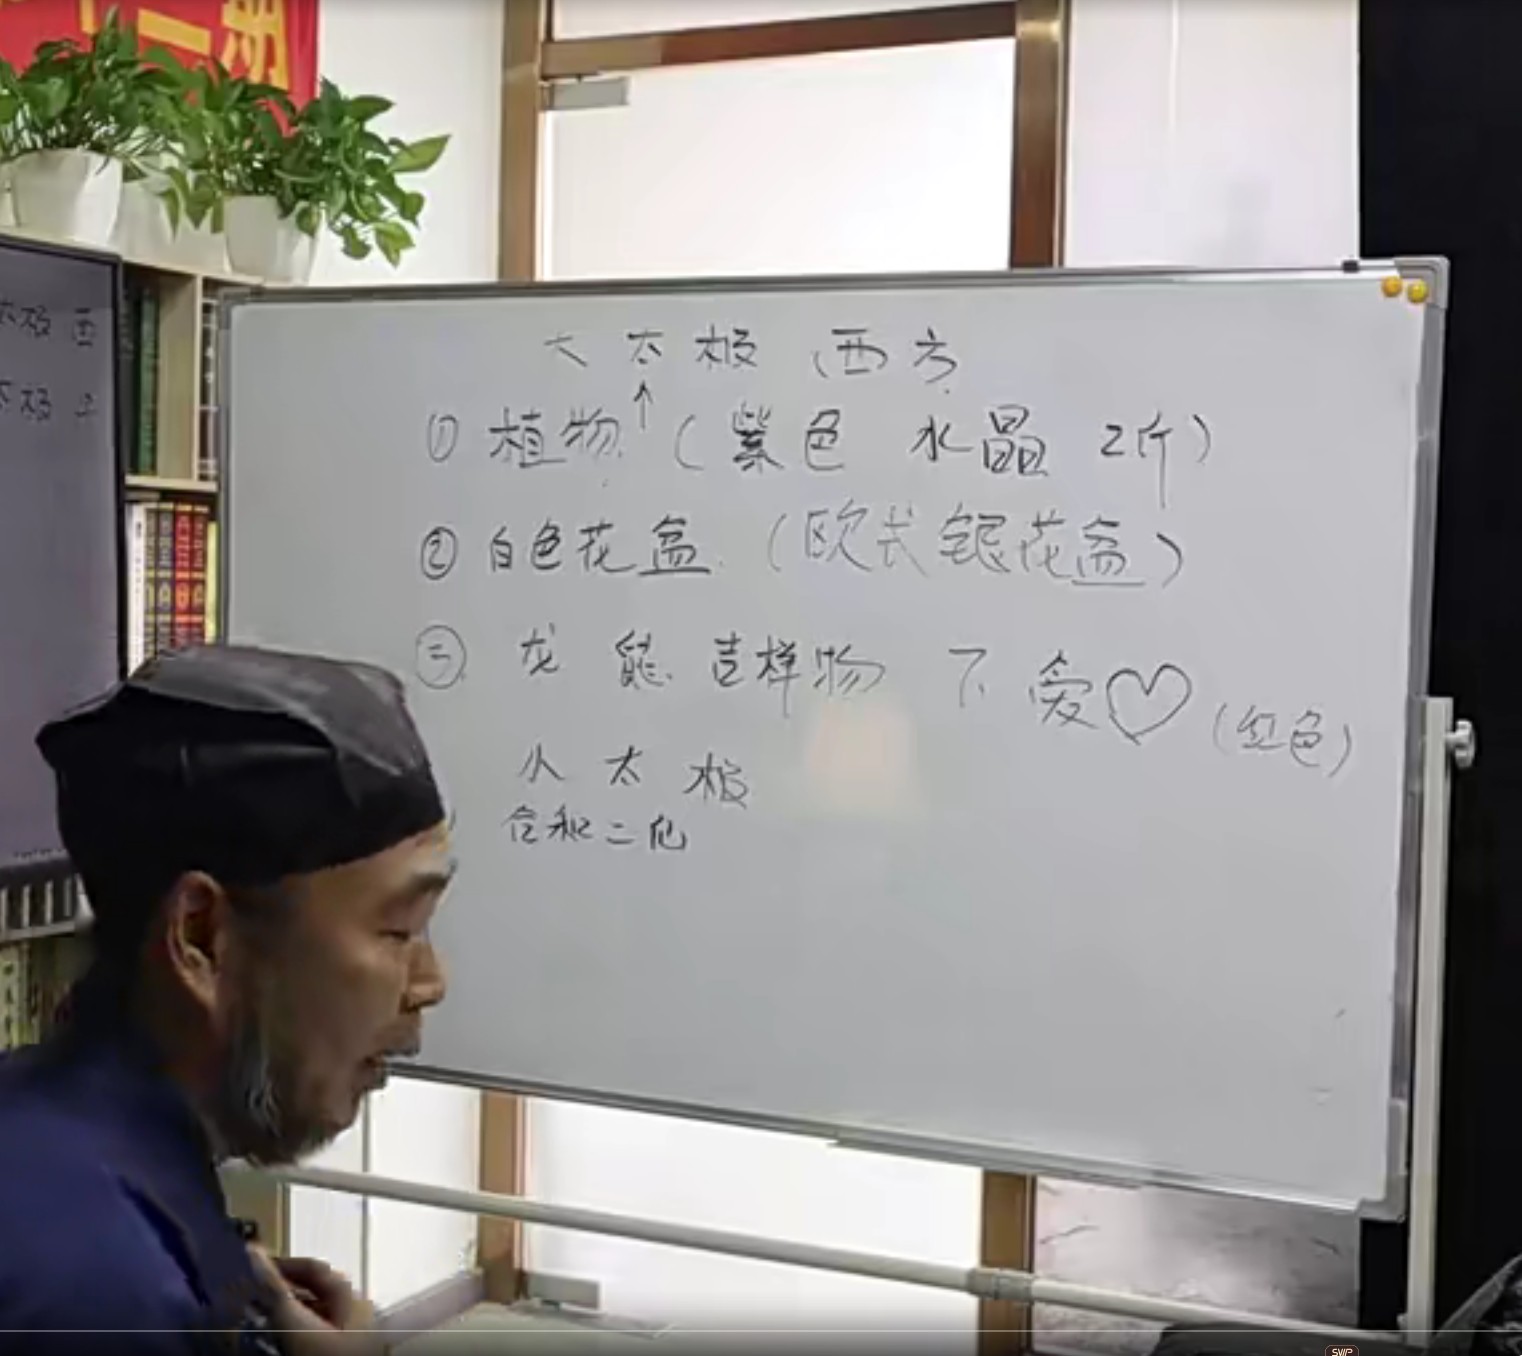 一期
大太极 西方
① 植物 (紫色 水晶 2斤)
② 白色花盆 (欧式银花盆)
三 龙 熊 吉样物 下 爱♡ (红色)
小太极
合和二仙
太极 西
太极
SVIP